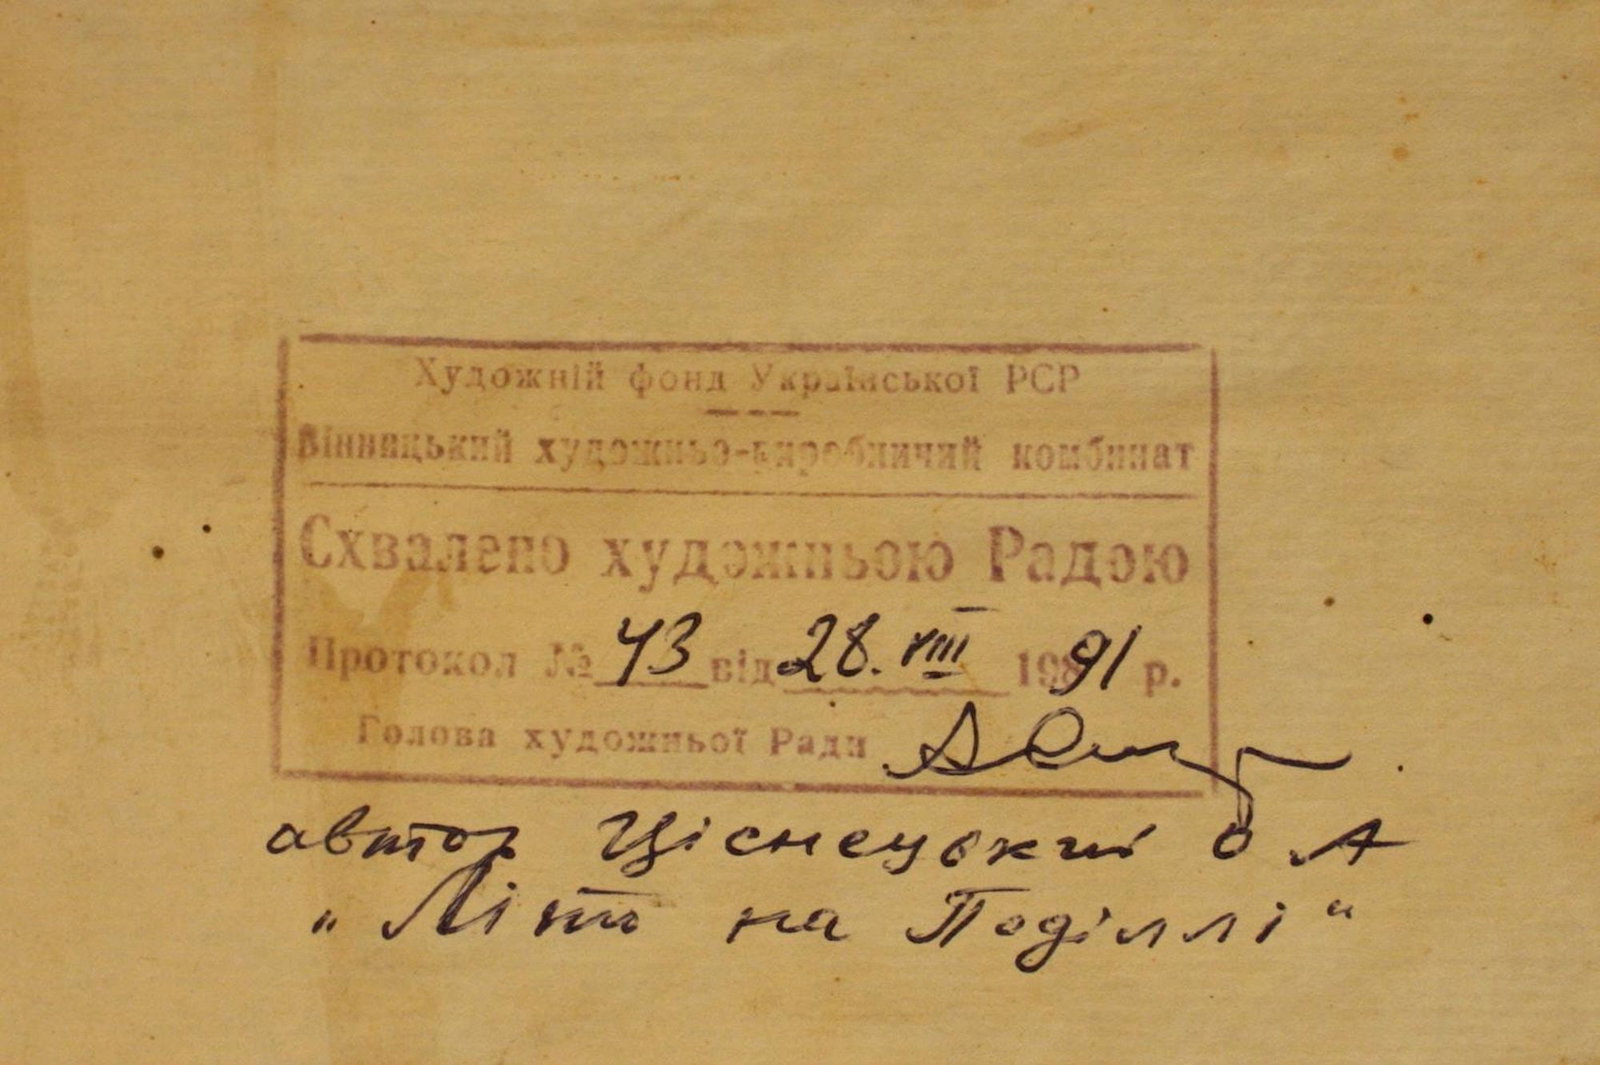 Художній фонд Української РСР
Вінницький художньо-виробничий комбинат
Схвалено художньою Радою
Протокол № 43 від 28. VIII 1991 р.
Голова художньої Ради
автор Ціснецький О А
„Літо на Поділлі“